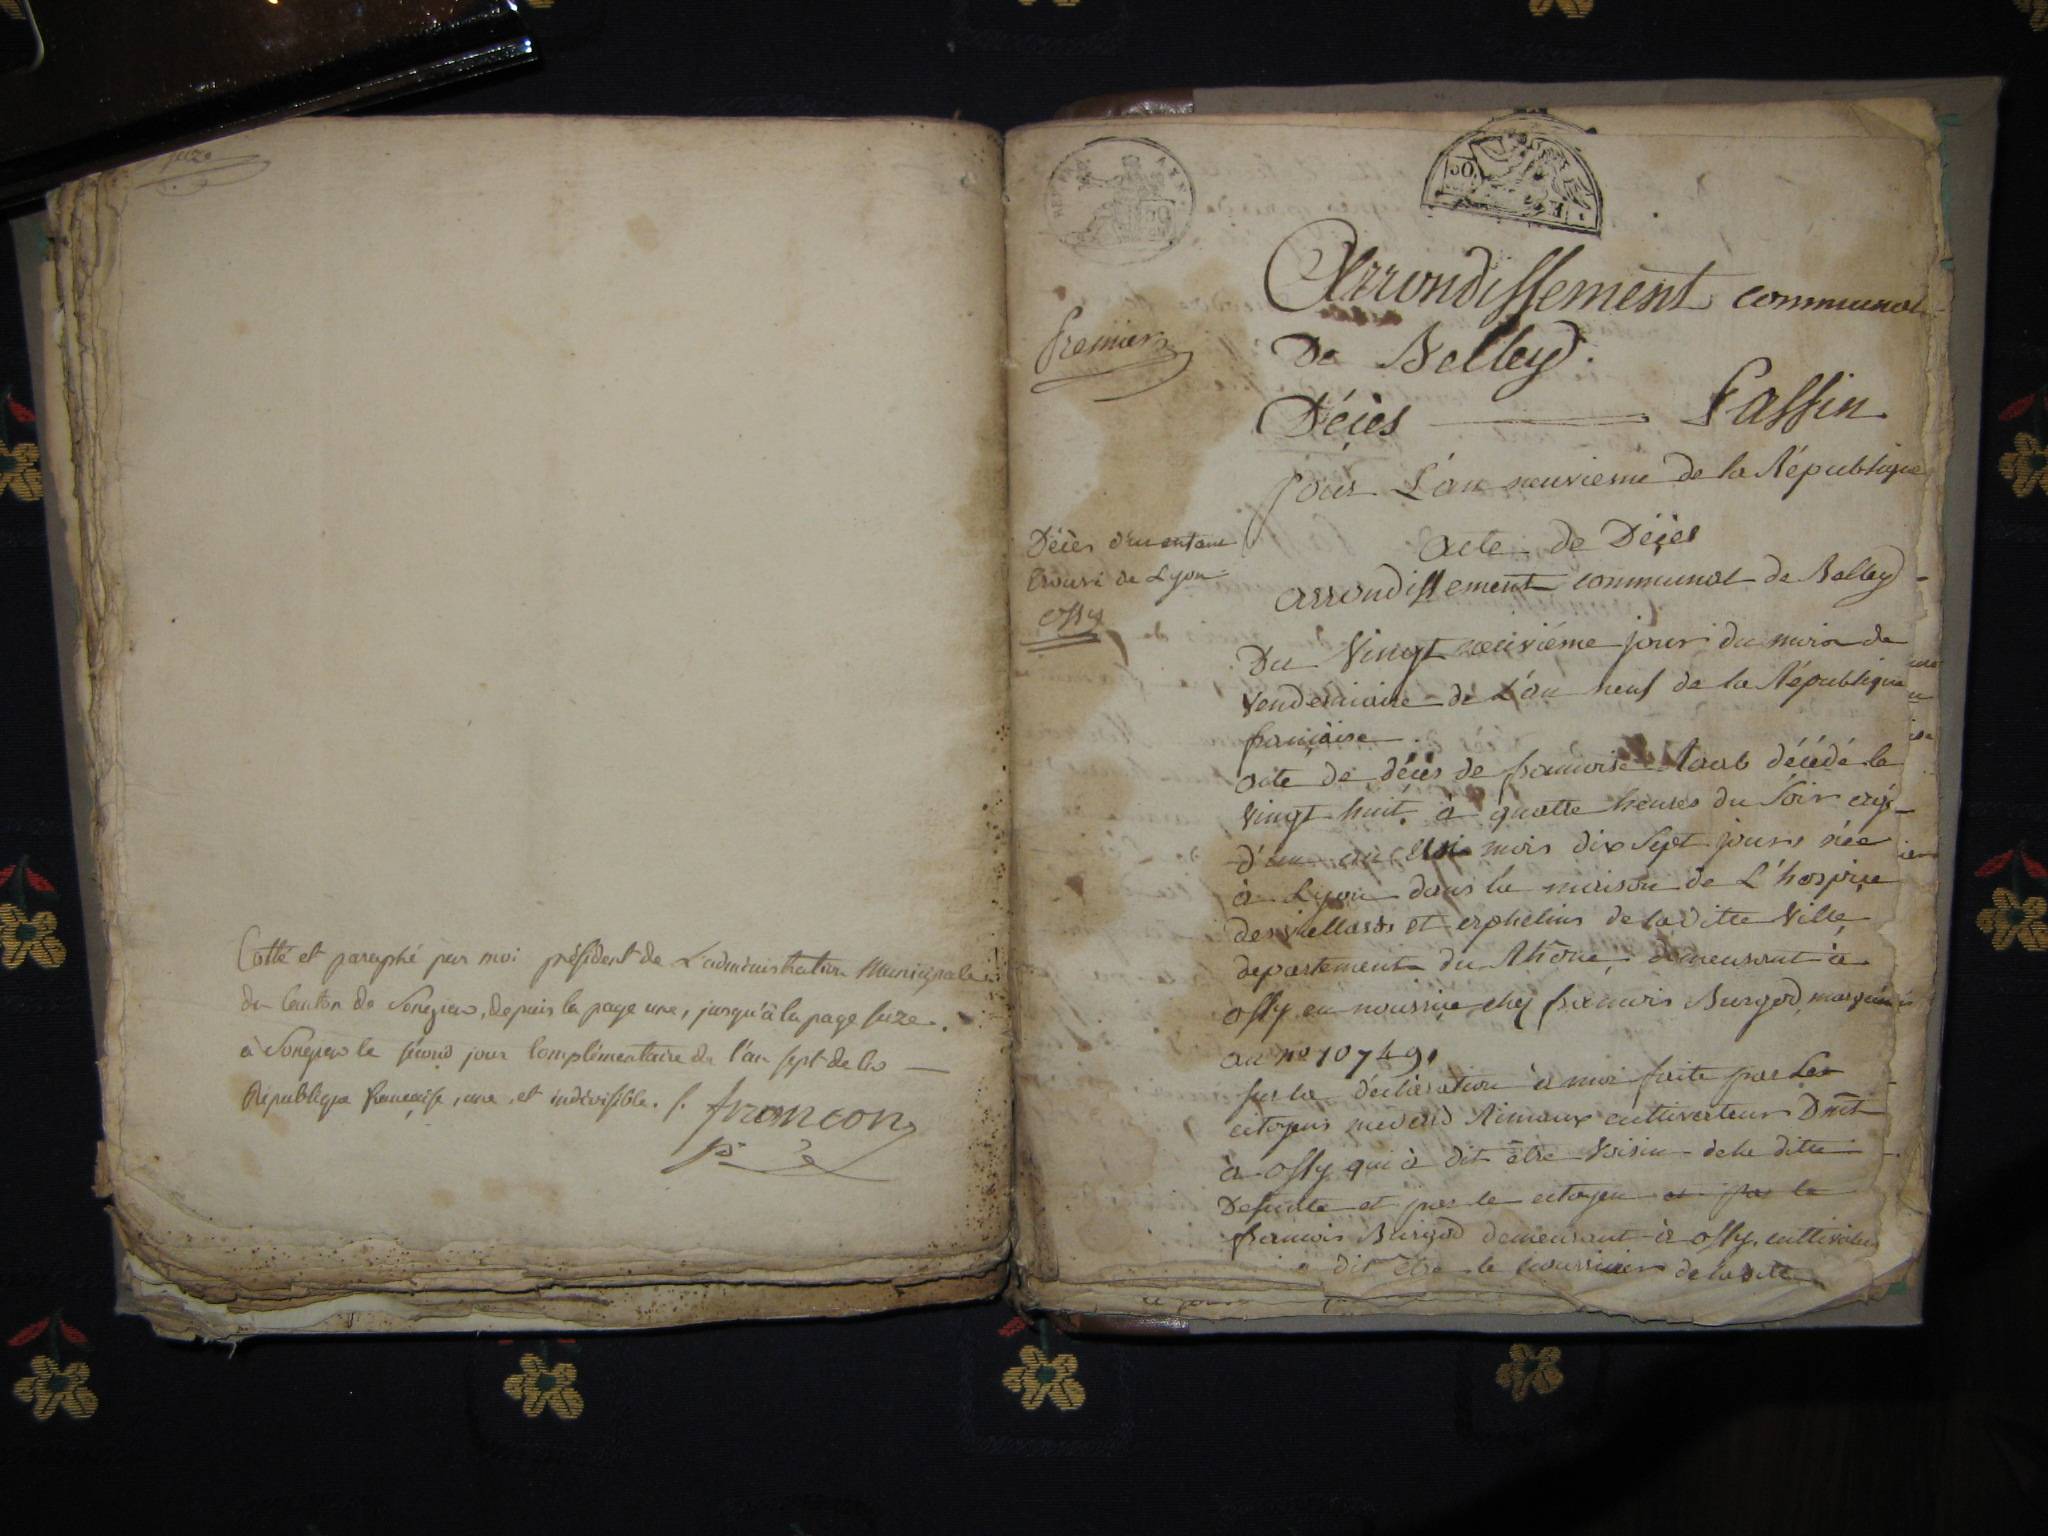 suze
Cotté et paraphé par moi président de L'administration Municipale
du Canton de Songieu, depuis la page une, jusqu'à la page suze.
à Songieu le second jour Complémentaire de l'an sept de la
République française, une, et indivisible. J. françon
REP. FRA. ANN.
50
50
Premier
Arrondissement communal
De Belley.
Décès Passin
pour L'an neuvieme de la République
Décès d'un enfant
trouvé de Lyon
ossy
acte de Décès
arrondissement communal de Belley
Du Vingt neuviéme jour du mois de
Vendémiaire de L'an neuf de la République
française.
acte de décès de francoise Raab décédé le
vingt huit, à quatre heures du Soir agé
d'un an un mois dix Sept jours née
à Lyon dans la maison de L'hospice
des viellards et orphelins de laditte Ville,
departement du Rhône, demeurant à
ossy en nourrice chez francois Burgod, marquée
au no 10749.
sur la déclaration à moi faite par Le
citoyen medard Rimaux cultivateur Dmt
à ossy qui à dit être Voisin de la ditte
Defunte et par le citoyen et par le
francois Burgod demeurant à ossy, cultivateur
à dit être le nourricier de laditte